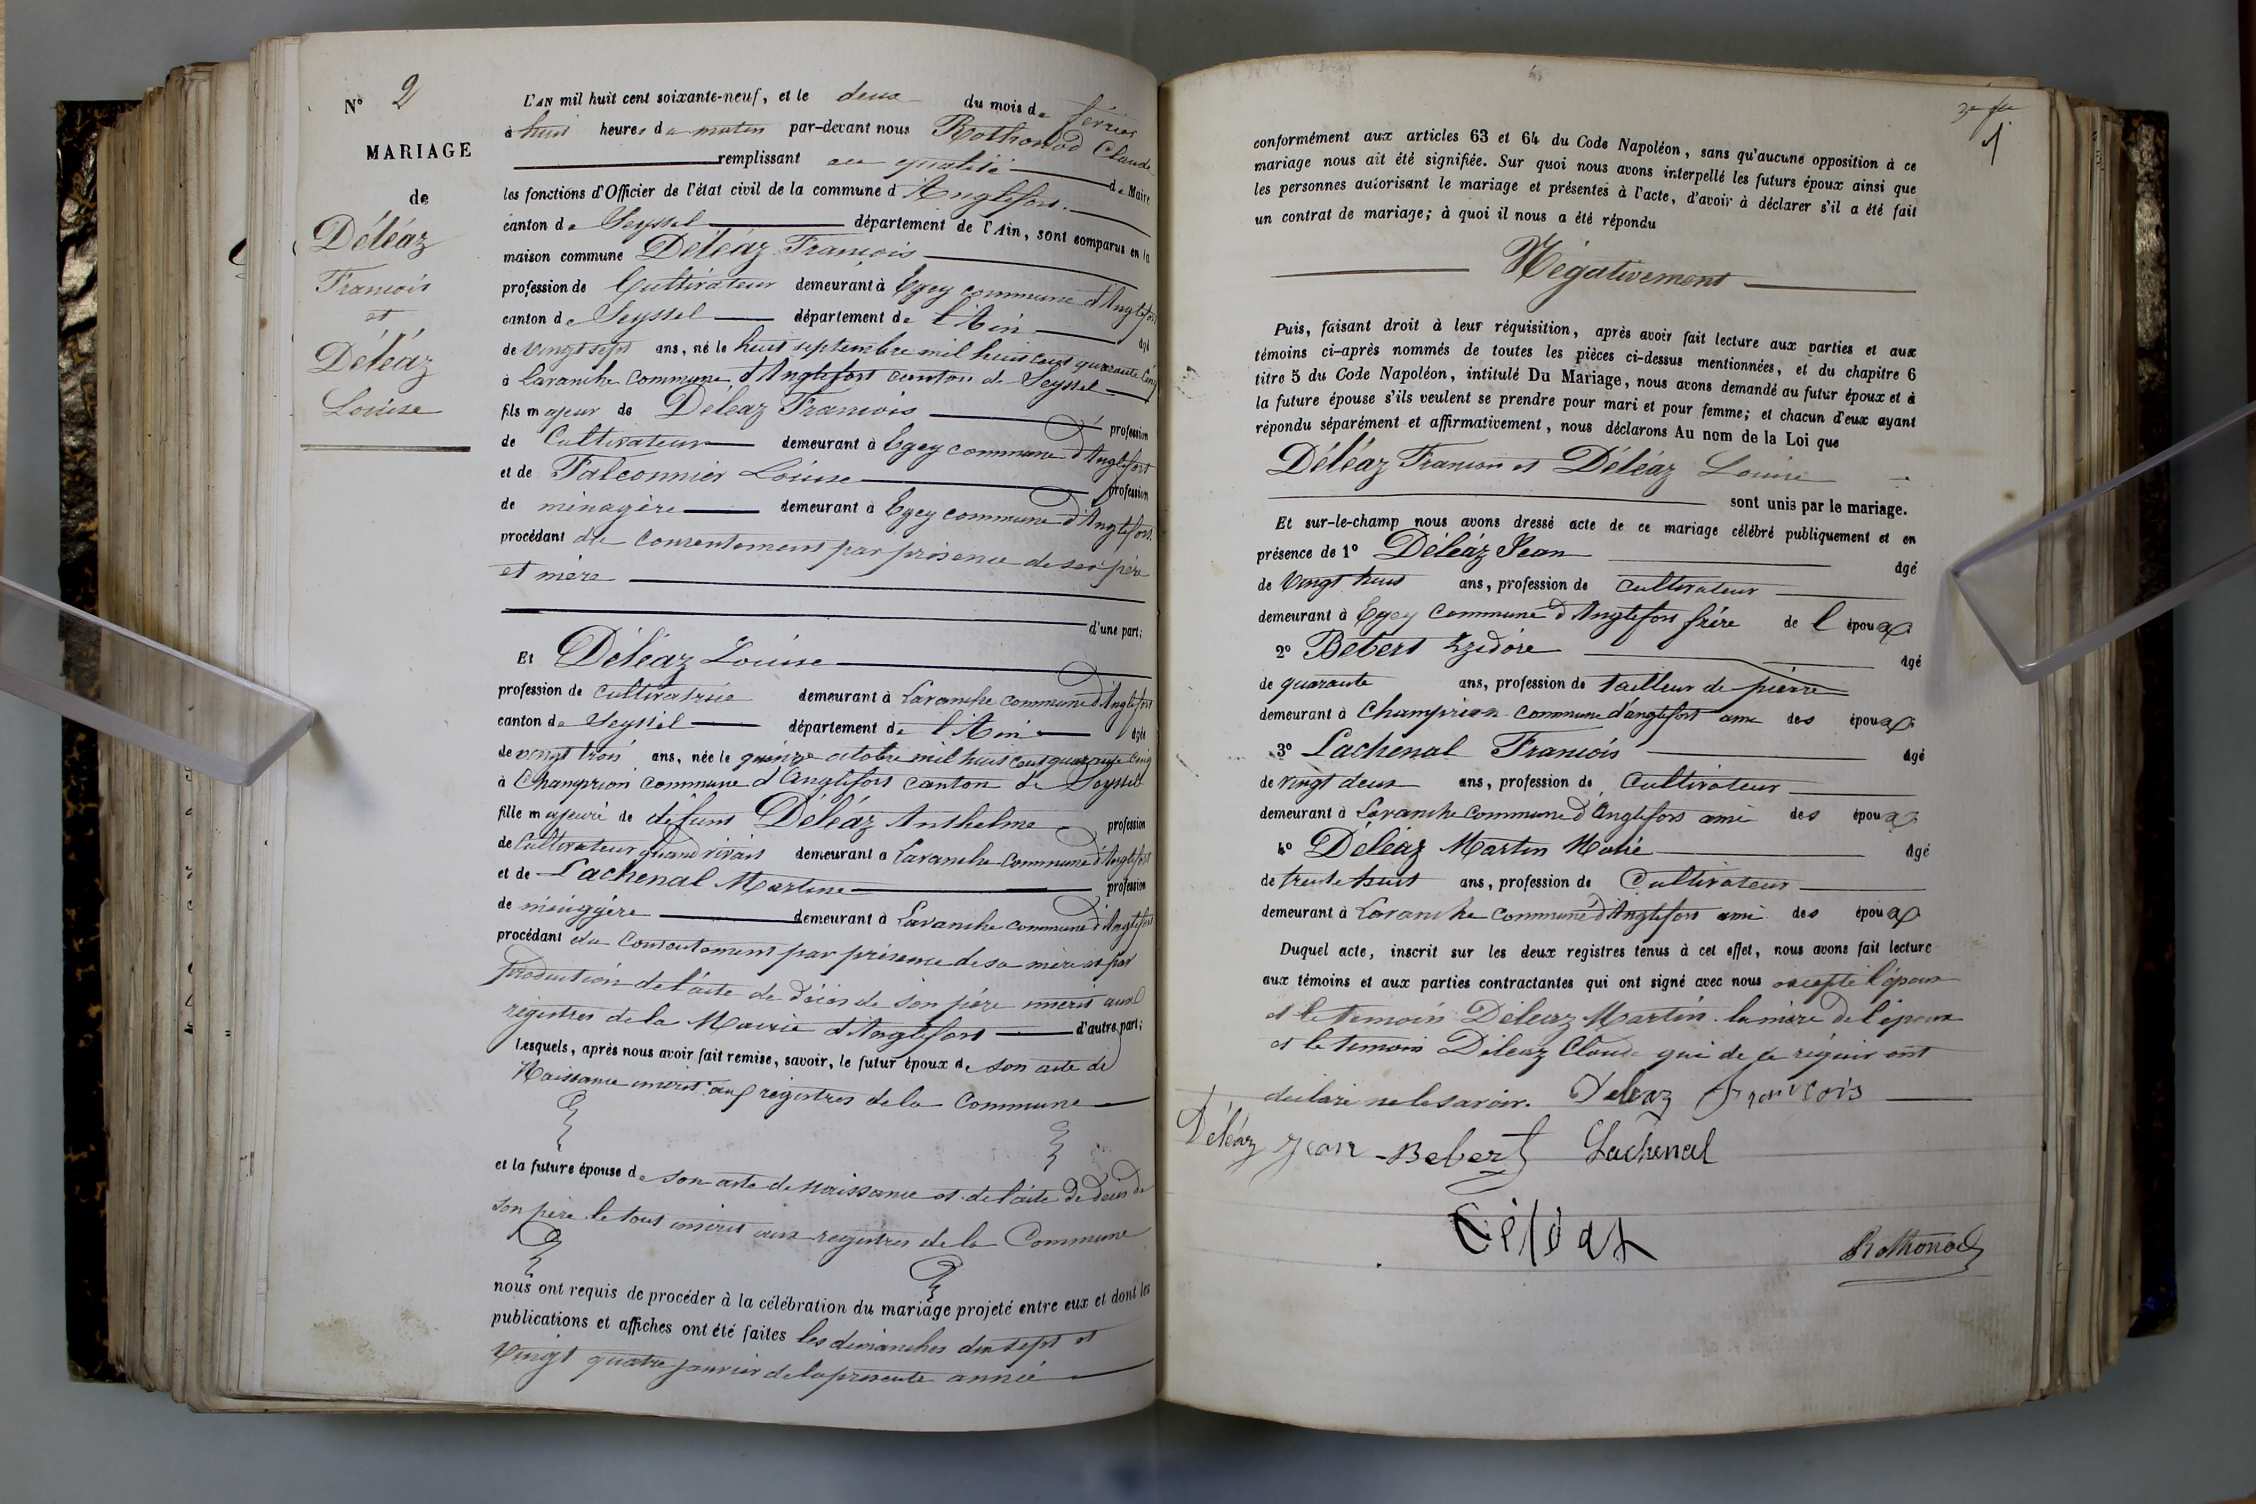 N° 2
MARIAGE
de
Déléaz
Francois
et
Déléaz
Louise
L'AN mil huit cent soixante-neuf, et le deux du mois de février
à huit heures du matin par-devant nous Rothonod Claude
remplissant en qualité de Maire
les fonctions d'Officier de l'état civil de la commune d'Anglefort
canton de Seyssel département de l'Ain, sont comparus en la
maison commune Déléaz Francois
profession de Cultivateur demeurant à Egey commune d'Anglefort
canton de Seyssel département de l'Ain âgé
de vingt sept ans, né le huit septembre mil huit cent quarante cinq
à Lavanche commune d'Anglefort canton de Seyssel
fils majeur de Deleaz Francois profession
de Cultivateur demeurant à Egey commune d'Anglefort
et de Falconnier Louise profession
de ménagère demeurant à Egey commune d'Anglefort
procédant du consentement par présence de ses père
et mère
d'une part;
Et Déléaz Louise
profession de cultivatrice demeurant à Lavanche commune d'Anglefort
canton de Seyssel département de l'Ain âgée
de vingt trois ans, née le quinze octobre mil huit cent quarante cinq
à Champrion commune d'Anglefort canton de Seyssel
fille majeure de défunt Déléaz Anthelme profession
de Cultivateur quand vivait demeurant à Lavanche Commune d'Anglefort
et de Lachenal Martine profession
de ménagère demeurant à Lavanche commune d'Anglefort
procédant du consentement par présence de sa mère et par
production de l'acte de décès de son père inscrit aux
registres de la Mairie d'Anglefort d'autre part;
Lesquels, après nous avoir fait remise, savoir, le futur époux de son acte de
Naissance inscrit aux registres de la Commune
et la future épouse de son acte de Naissance et de l'acte de décès de
son père le tout inscrit aux registres de la Commune
nous ont requis de procéder à la célébration du mariage projeté entre eux et dont les
publications et affiches ont été faites les dimanches dix sept et
vingt quatre janvier de la présente année
conformément aux articles 63 et 64 du Code Napoléon, sans qu'aucune opposition à ce
mariage nous ait été signifiée. Sur quoi nous avons interpellé les futurs époux ainsi que
les personnes autorisant le mariage et présentes à l'acte, d'avoir à déclarer s'il a été fait
un contrat de mariage; à quoi il nous a été répondu
Négativement
Puis, faisant droit à leur réquisition, après avoir fait lecture aux parties et aux
témoins ci-après nommés de toutes les pièces ci-dessus mentionnées, et du chapitre 6
titre 5 du Code Napoléon, intitulé Du Mariage, nous avons demandé au futur époux et à
la future épouse s'ils veulent se prendre pour mari et pour femme; et chacun d'eux ayant
répondu séparément et affirmativement, nous déclarons Au nom de la Loi que
Déléaz Francois et Déléaz Louise
sont unis par le mariage.
Et sur-le-champ nous avons dressé acte de ce mariage célébré publiquement et en
présence de 1° Déléaz Jean âgé
de vingt huit ans, profession de cultivateur
demeurant à Egey commune d'Anglefort frère de l époux
2° Bebert Izidore âgé
de quarante ans, profession de tailleur de pierre
demeurant à Champrion commune d'anglefort ami des époux
3° Lachenal Francois âgé
de vingt deux ans, profession de Cultivateur
demeurant à Lavanche commune d'Anglefort ami des époux
4° Déléaz Martin âgé
de trente huit ans, profession de Cultivateur
demeurant à Lavanche commune d'Anglefort ami des époux
Duquel acte, inscrit sur les deux registres tenus à cet effet, nous avons fait lecture
aux témoins et aux parties contractantes qui ont signé avec nous excepté l'épouse
et le temoin Déleaz Martin la mère de l'époux
et le temoin Déleaz Claude qui de ce réquis ont
déclaré ne le savoir. Deleaz francois
Déléaz Jean Bebert Lachenal
Rothonod